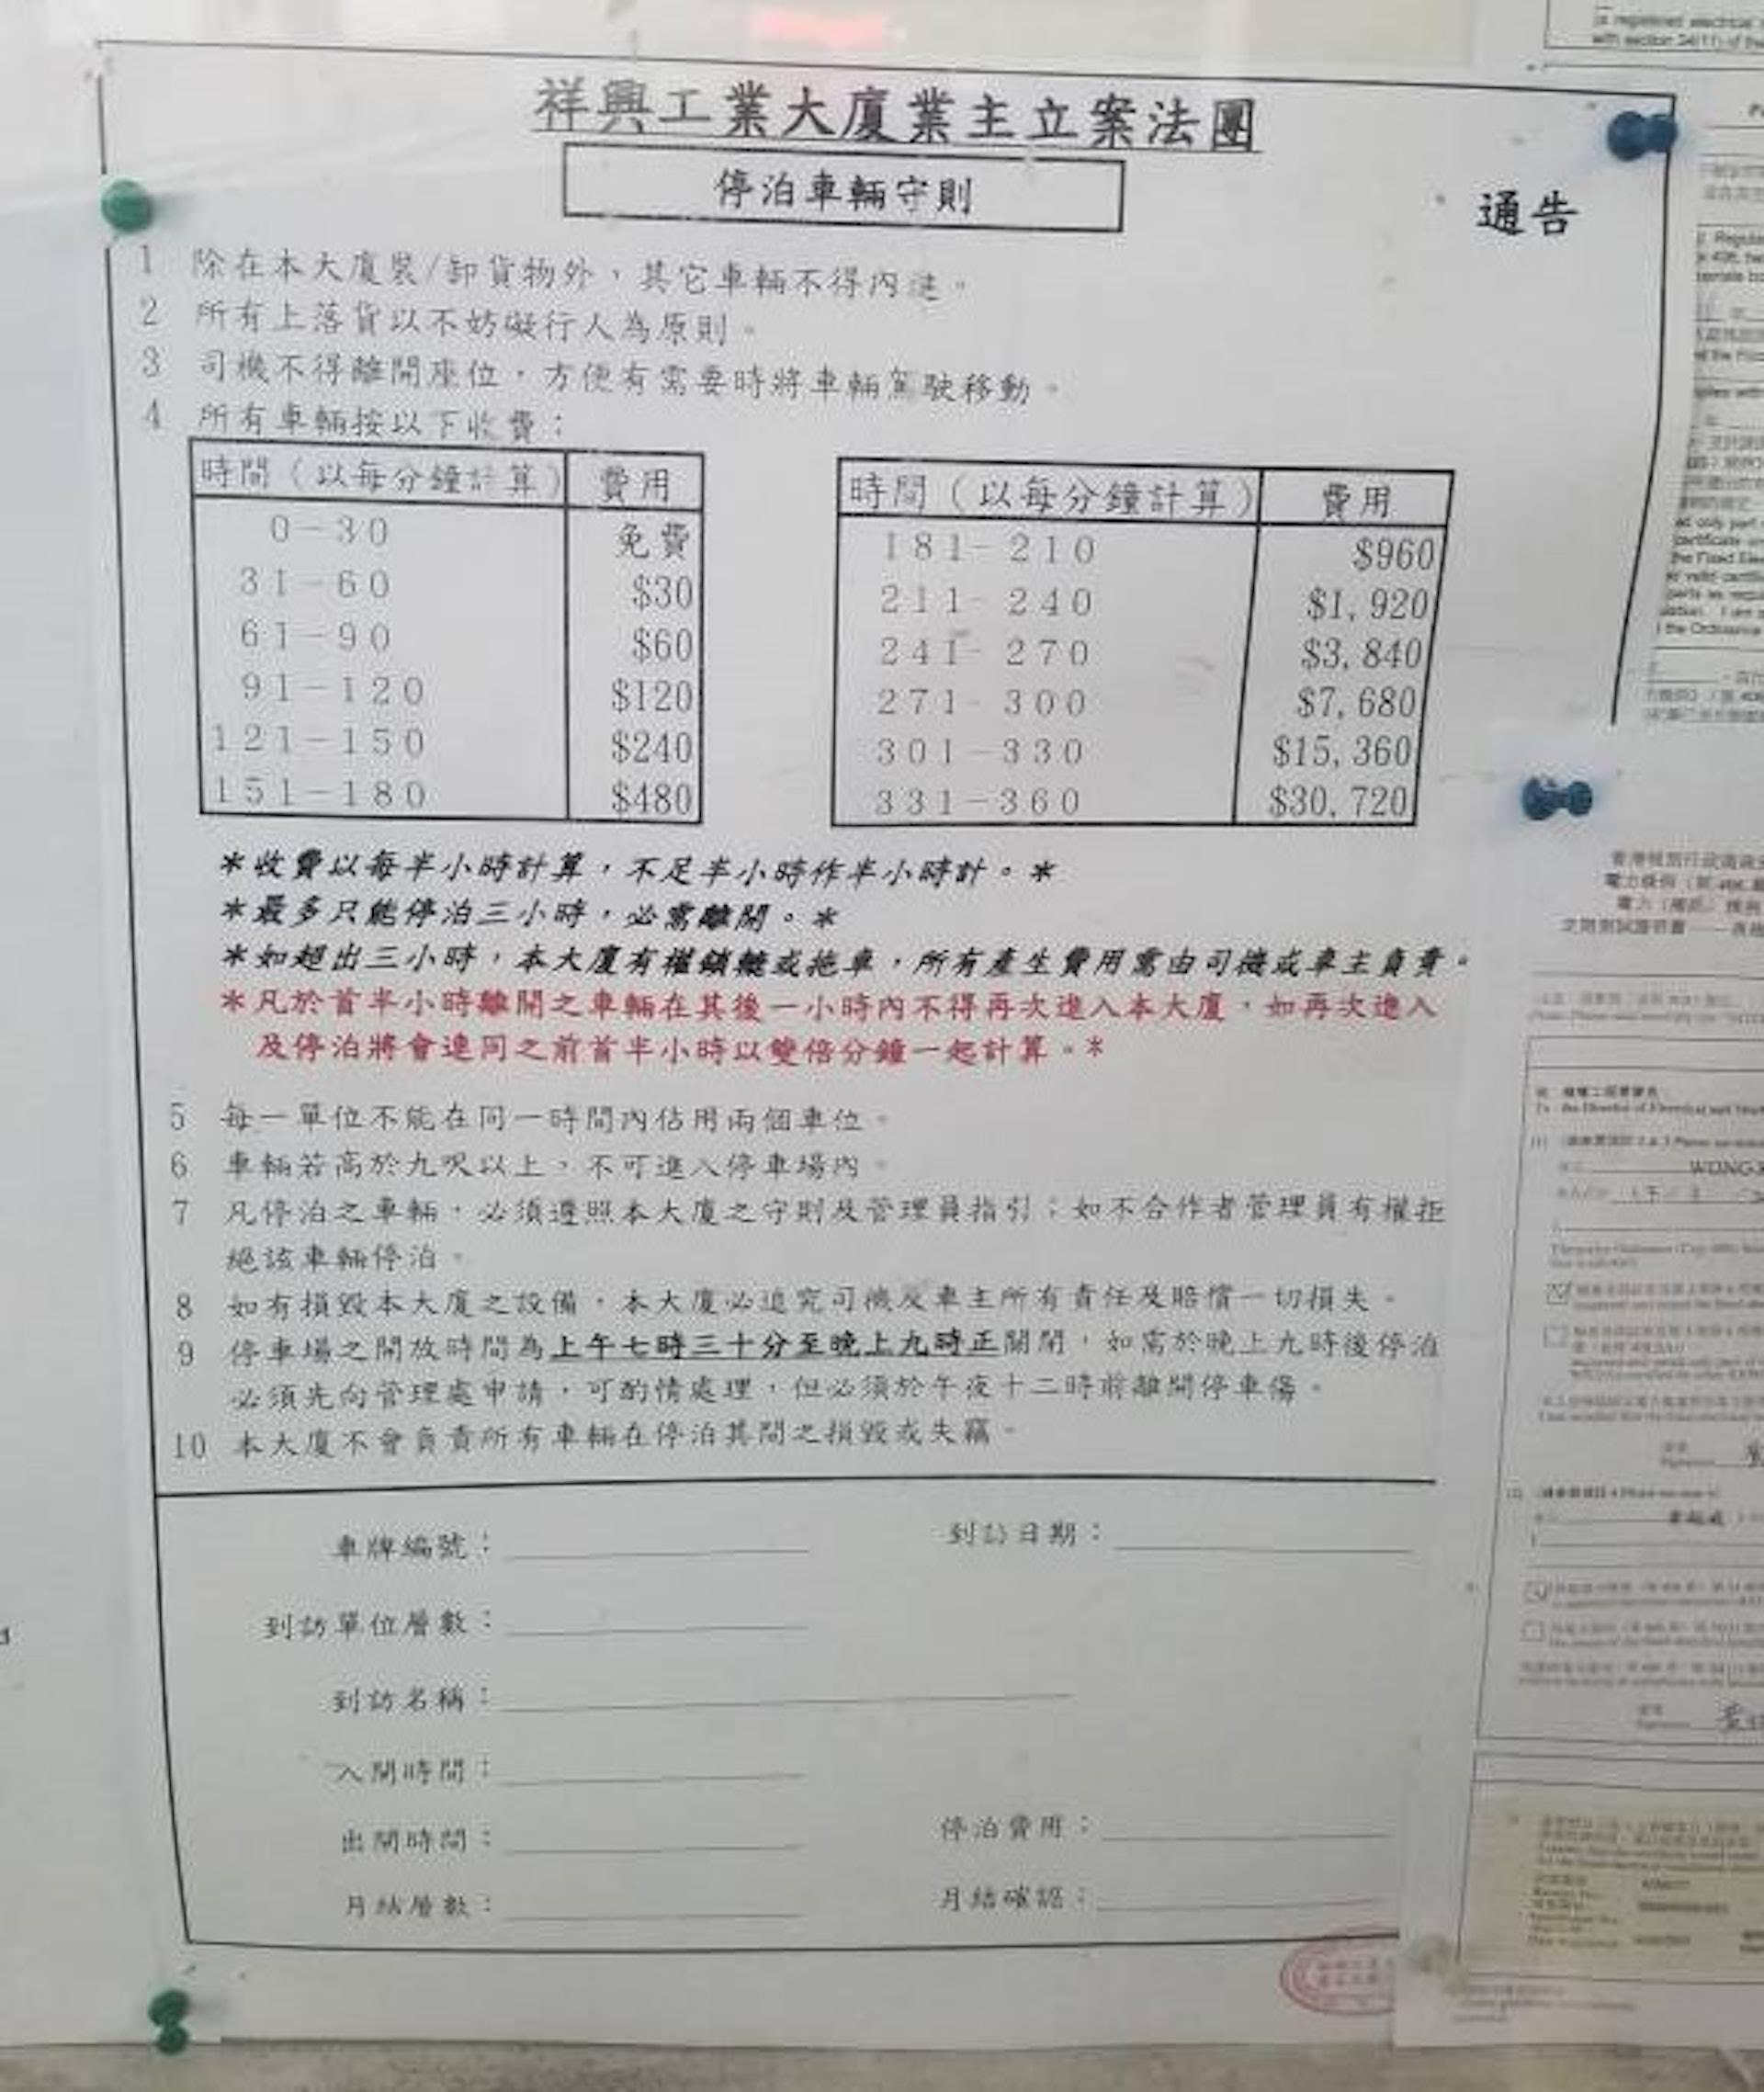 祥興工業大廈業主立案法團
停泊車輛守則
通告
1 除在本大廈裝/卸貨物外，其它車輛不得內進。
2 所有上落貨以不妨礙行人為原則。
3 司機不得離開座位，方便有需要時將車輛駕駛移動。
4 所有車輛按以下收費：
時間（以每分鐘計算） 費用
0－30 免費
31－60 $30
61－90 $60
91－120 $120
121－150 $240
151－180 $480
時間（以每分鐘計算） 費用
181－210 $960
211－240 $1,920
241－270 $3,840
271－300 $7,680
301－330 $15,360
331－360 $30,720
＊收費以每半小時計算，不足半小時作半小時計。＊
＊最多只能停泊三小時，必需離開。＊
＊如超出三小時，本大廈有權鎖轆或拖車，所有產生費用需由司機或車主負責。
＊凡於首半小時離開之車輛在其後一小時內不得再次進入本大廈，如再次進入
及停泊將會連同之前首半小時以雙倍分鐘一起計算。＊
5 每一單位不能在同一時間內佔用兩個車位。
6 車輛若高於九呎以上，不可進入停車場內。
7 凡停泊之車輛，必須遵照本大廈之守則及管理員指引；如不合作者管理員有權拒
絕該車輛停泊。
8 如有損毀本大廈之設備，本大廈必追究司機及車主所有責任及賠償一切損失。
9 停車場之開放時間為上午七時三十分至晚上九時正關閉，如需於晚上九時後停泊
必須先向管理處申請，可酌情處理，但必須於午夜十二時前離開停車傷。
10 本大廈不會負責所有車輛在停泊其間之損毀或失竊。
車牌編號：
到訪日期：
到訪單位層數：
到訪名稱：
入閘時間：
出閘時間：
停泊費用：
月結層數：
月結確認：